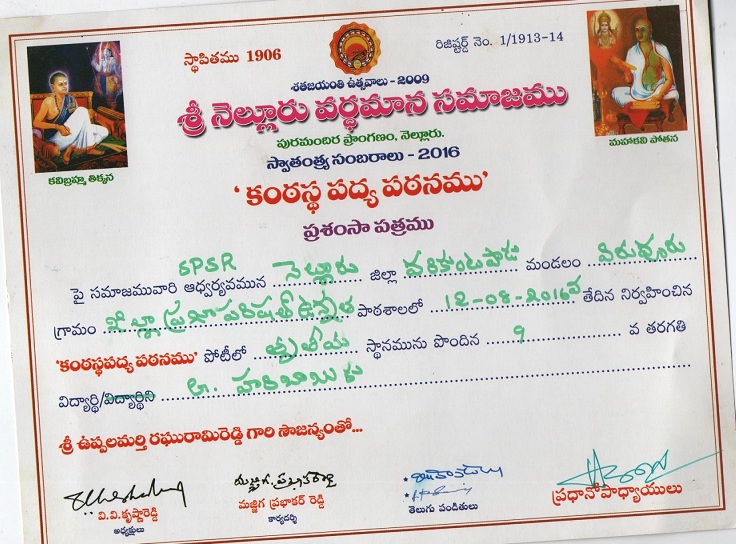 స్థాపితము 1906
రిజిష్టర్డ్ నెం. 1/1913-14
శతజయంతి ఉత్సవాలు - 2009
శ్రీ నెల్లూరు వర్ధమాన సమాజము
పురమందిర ప్రాంగణం, నెల్లూరు.
స్వాతంత్ర్య సంబరాలు - 2016
కవిబ్రహ్మ తిక్కన
మహాకవి పోతన
'కంఠస్థ పద్య పఠనము'
ప్రశంసా పత్రము
పై సమాజమువారి ఆధ్వర్యవమున SPSR నెల్లూరు జిల్లా వరికుంటపాడు మండలం విరువూరు
గ్రామం జిల్లా ప్రజా పరిషత్ ఉన్నత పాఠశాలలో 12-08-2016వ తేదిన నిర్వహించిన
'కంఠస్థపద్య పఠనము' పోటీలో తృతీయ స్థానమును పొందిన 9 వ తరగతి
విద్యార్థి/విద్యార్థిని హరిబాబుకు
శ్రీ ఉప్పలమర్తి రఘురామిరెడ్డి గారి సౌజన్యంతో...
వి.వి.కృష్ణారెడ్డి
అధ్యక్షులు
మజ్జిగ ప్రభాకర్ రెడ్డి
కార్యదర్శి
తెలుగు పండితులు
ప్రధానోపాధ్యాయులు